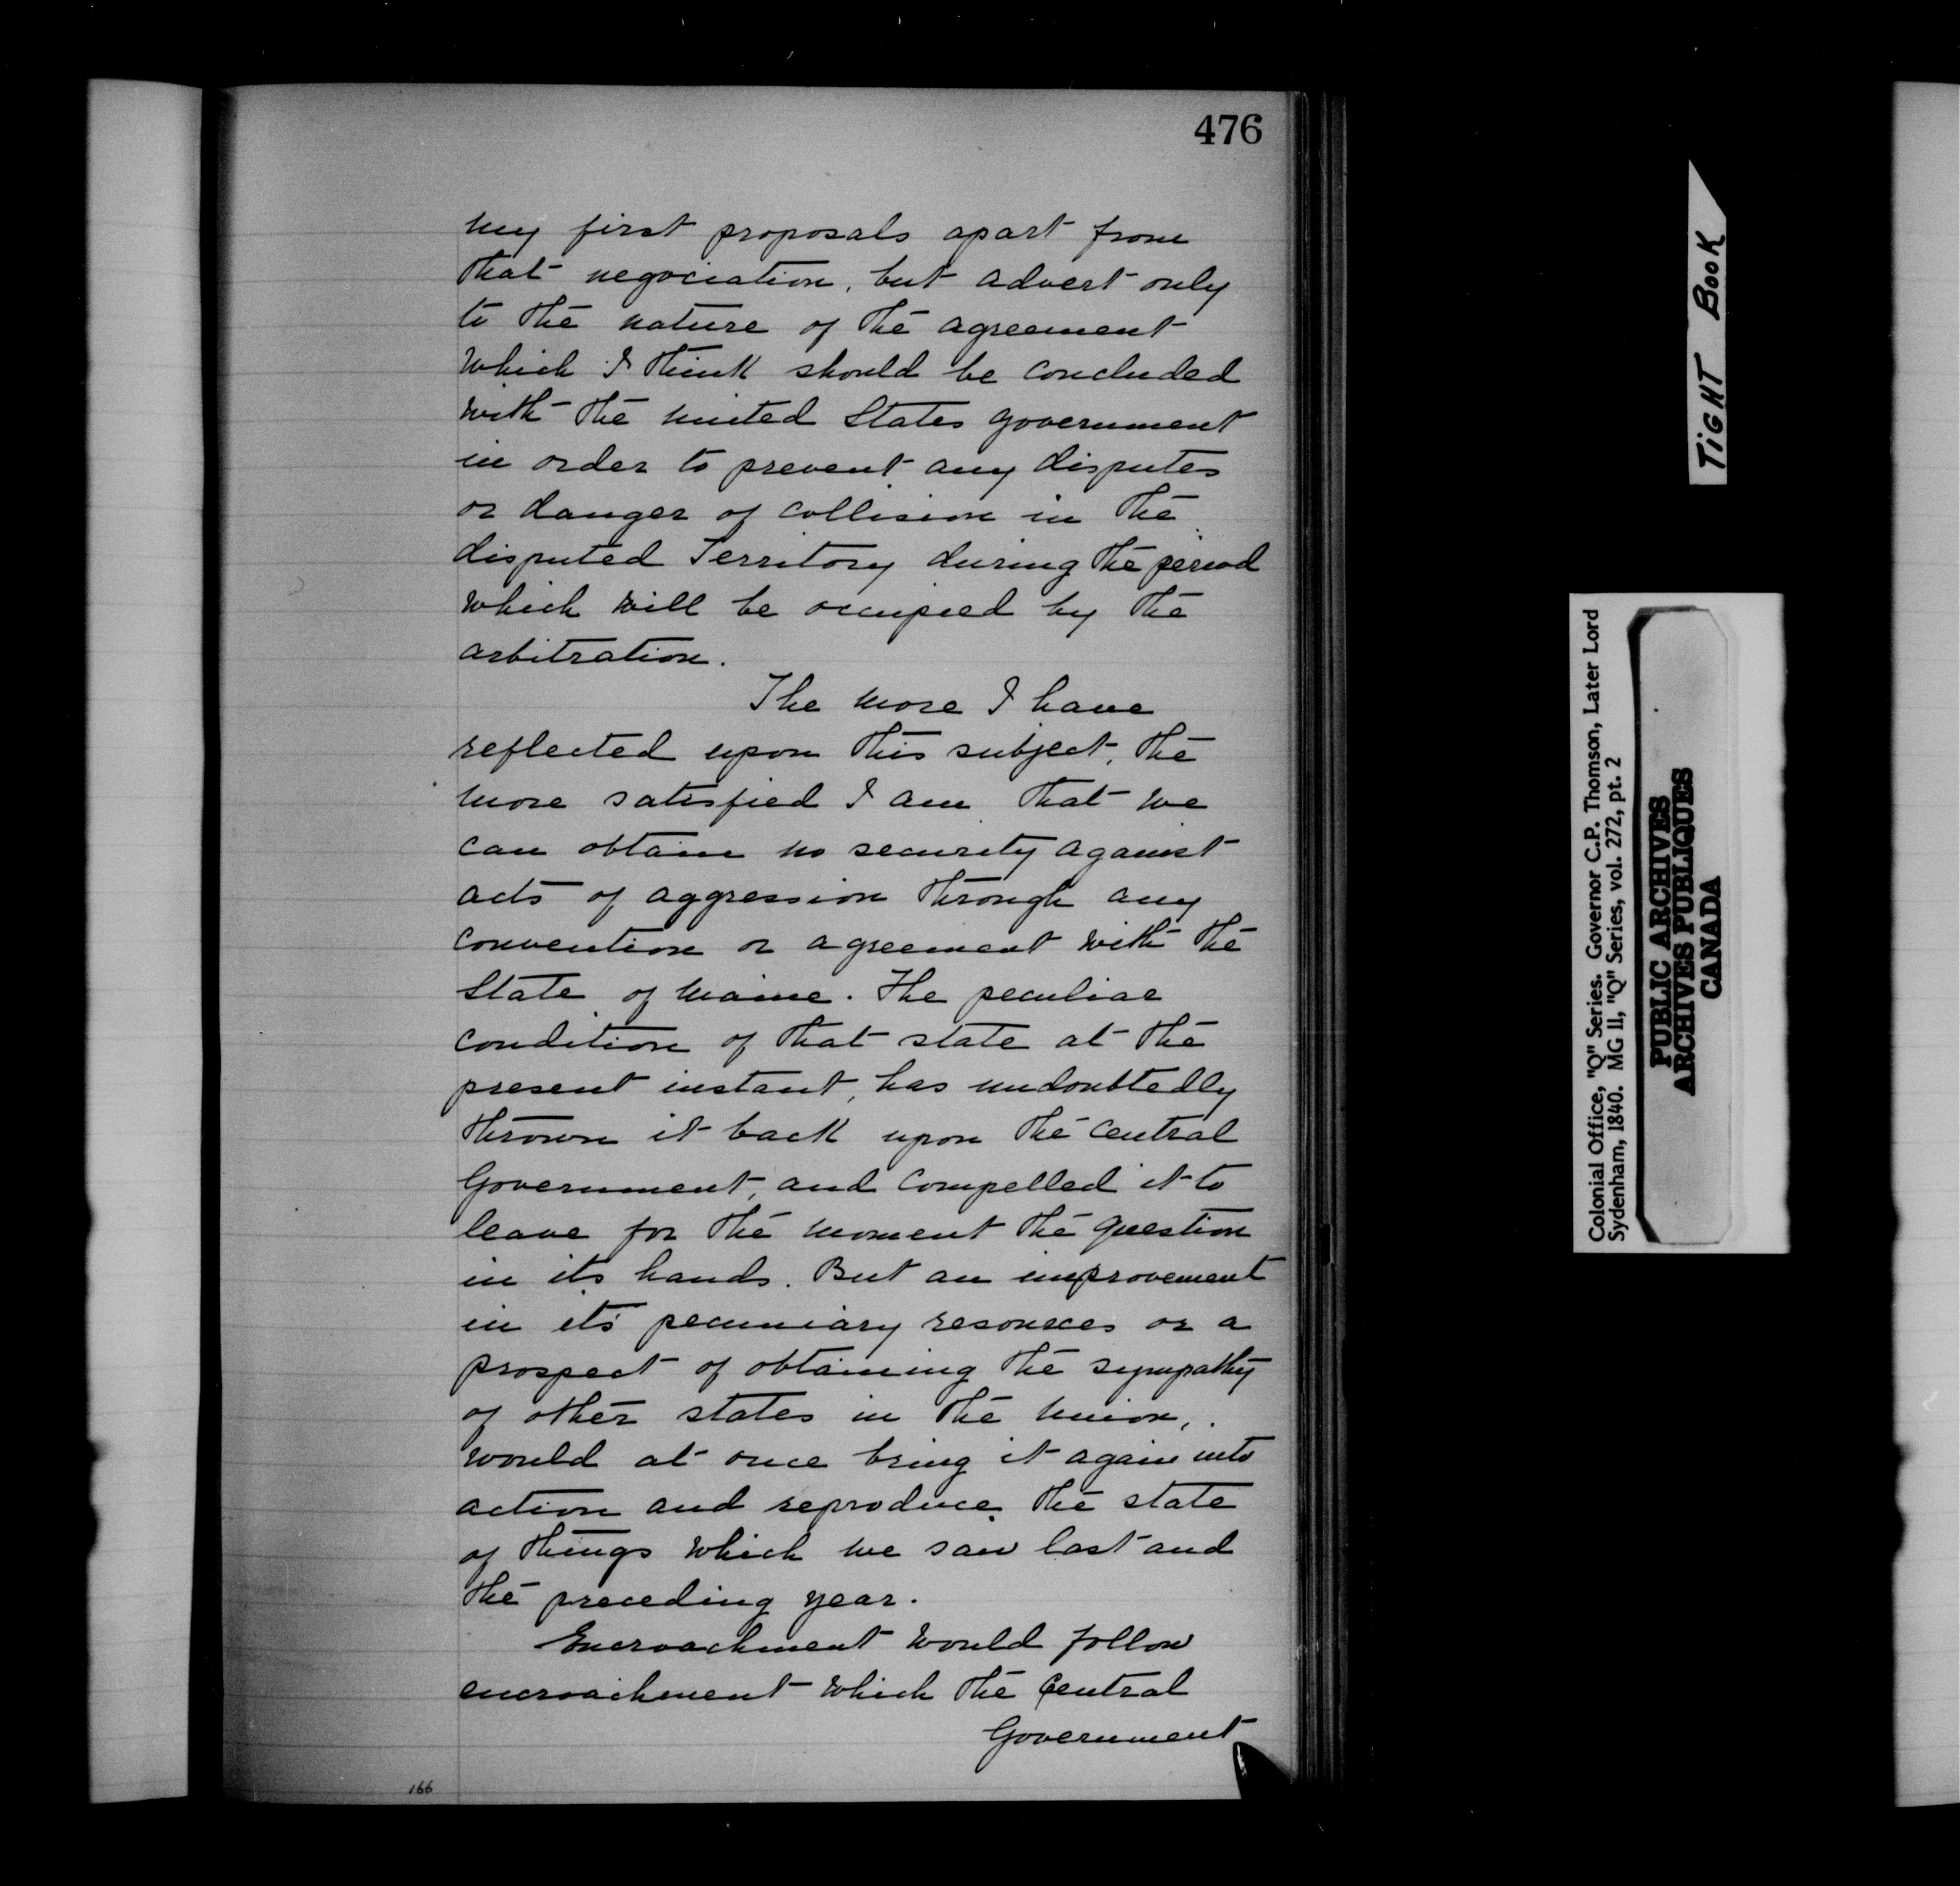 476
my first proposals apart from
that negociation, but advert only
to the nature of the agreement
which I think should be concluded
with the united States government
in order to prevent any disputes
or danger of collision in the
disputed Territory during the period
which will be occupied by the
arbitration.
The more I have
reflected upon this subject, the
more satisfied I am that we
can obtain no security against
acts of aggression through any
convention or agreement with the
State of Maine. The peculiar
condition of that state at the
present instant, has undoubtedly
thrown it back upon the central
Government, and compelled it to
leave for the moment the question
in its hands. But an improvement
in its pecuniary resources or a
prospect of obtaining the sympathy
of other states in the Union,
would at once bring it again into
action and reproduce the state
of things which we saw last and
the preceding year.
Encroachment would follow
encroachment which the Central
Government
166
TIGHT BOOK
Colonial Office, "Q" Series. Governor C.P. Thomson, Later Lord
Sydenham, 1840. MG 11, "Q" Series, vol. 272, pt. 2
PUBLIC ARCHIVES
ARCHIVES PUBLIQUES
CANADA